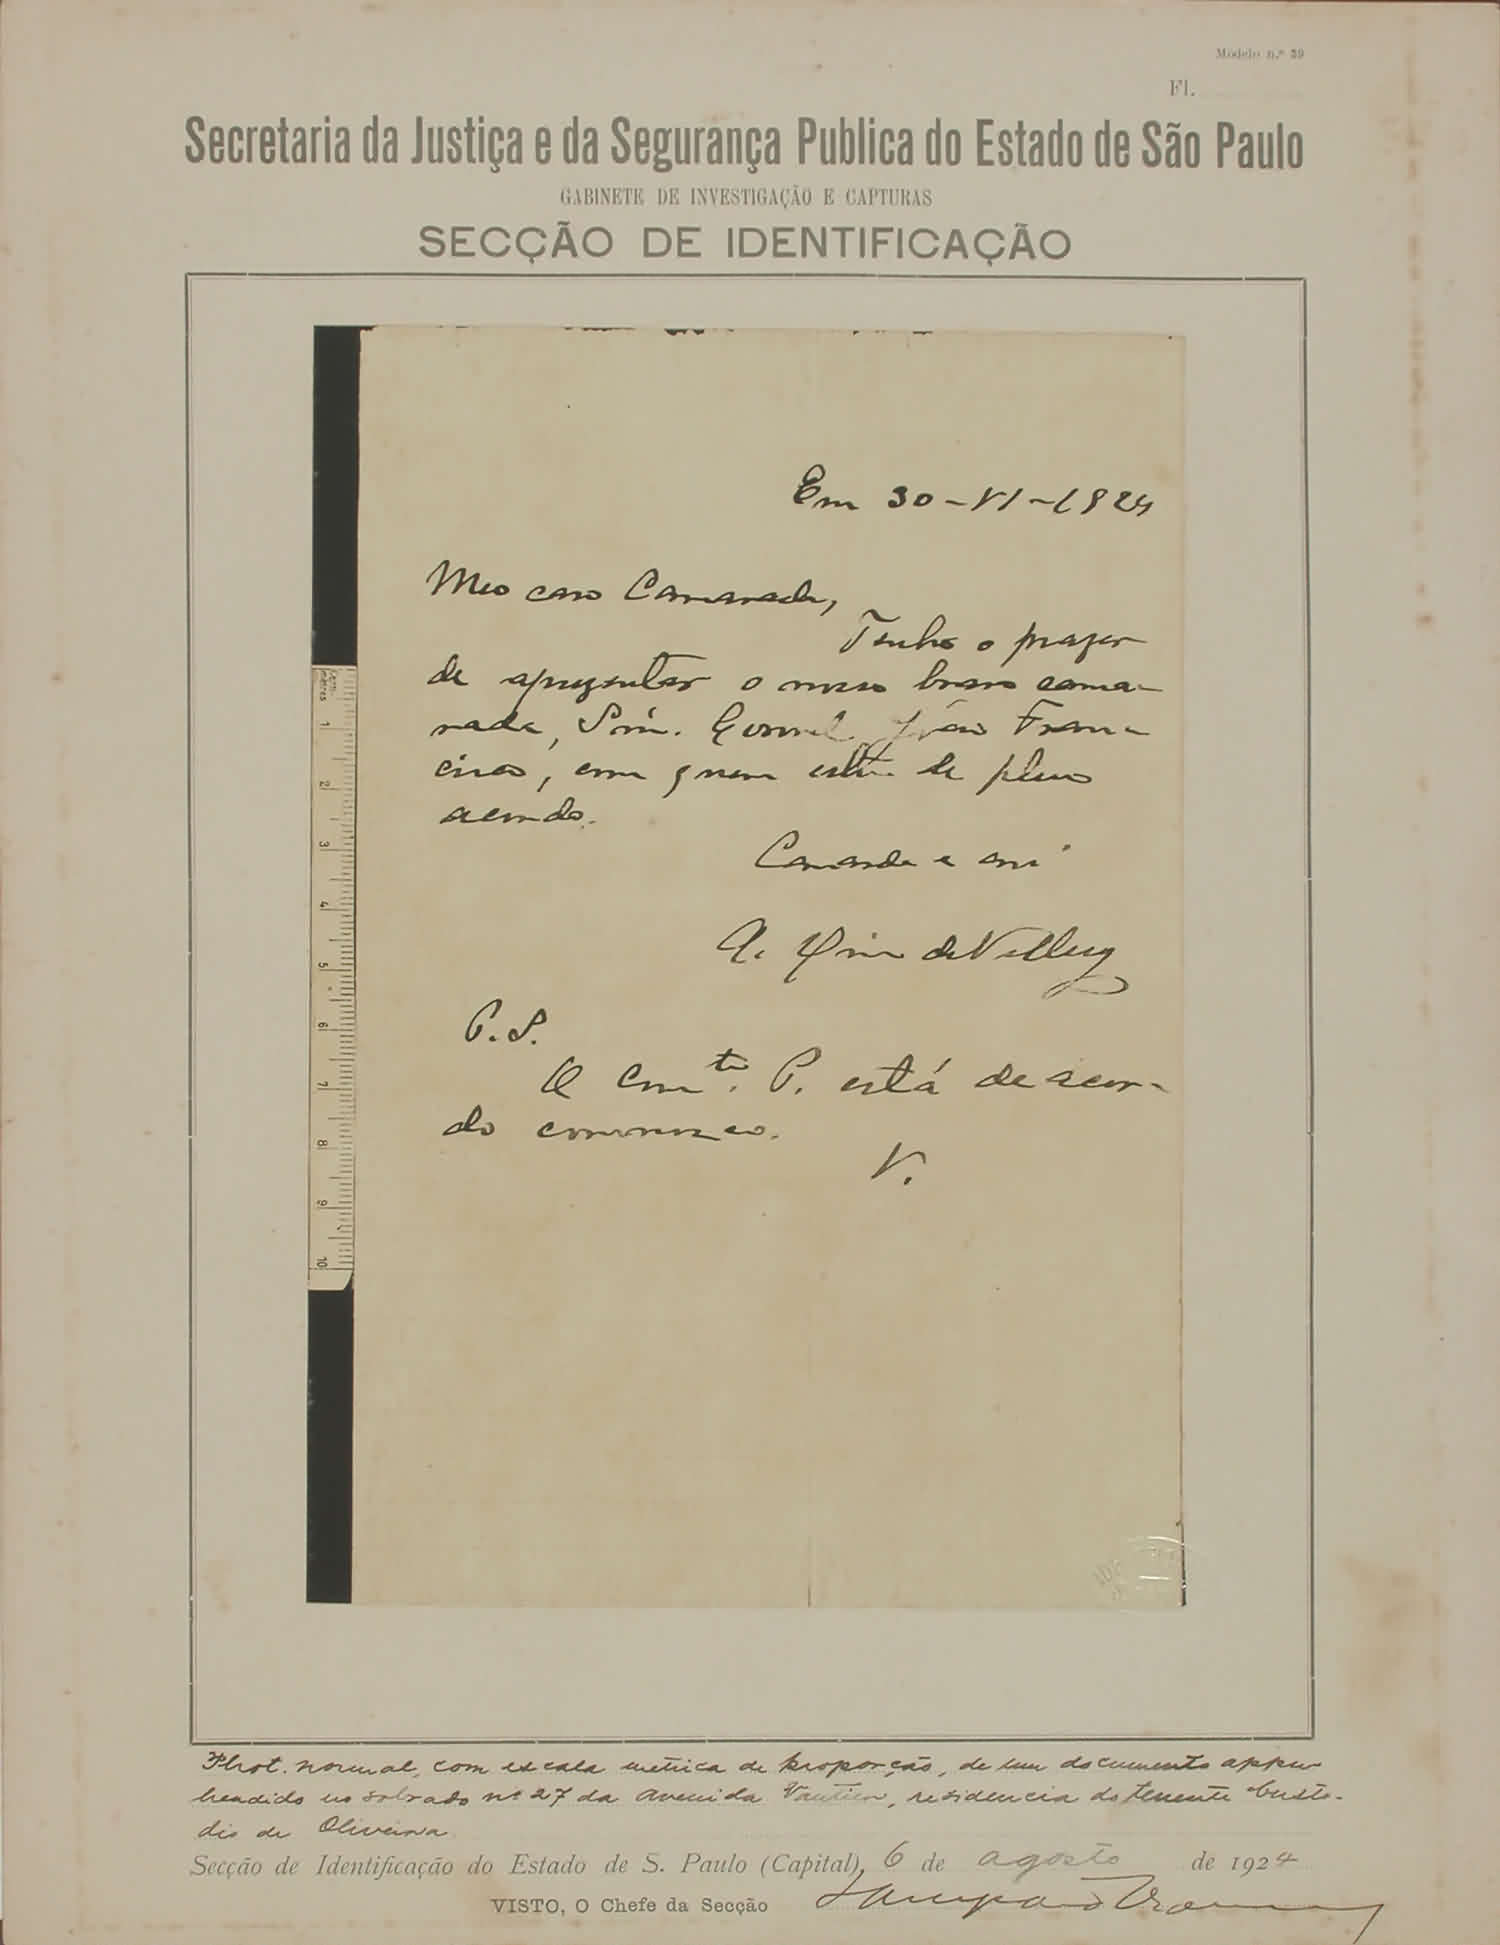 Modelo n.º 39
Fl.
Secretaria da Justiça e da Segurança Publica do Estado de São Paulo
GABINETE DE INVESTIGAÇÃO E CAPTURAS
SECÇÃO DE IDENTIFICAÇÃO
Em 30-VI-1924
Meo caro Camarada,
Tenho o prazer
de apresentar o nosso bravo cama-
rada, Snr. Coronel João Fran-
cisco, com quem estou de pleno
acordo.
Camarada e am
de
P.S.
O Comte. P. está de acor-
do comnosco.
V.
centi-
metros
1
2
3
4
5
6
7
8
9
10
Phot. normal, com escala metrica de proporção, de um documento appre-
hendido no sobrado nº 27 da Avenida Vautier, residencia do tenente Custo-
dio de Oliveira
Secção de Identificação do Estado de S. Paulo (Capital), 6 de agosto de 1924
VISTO, O Chefe da Secção